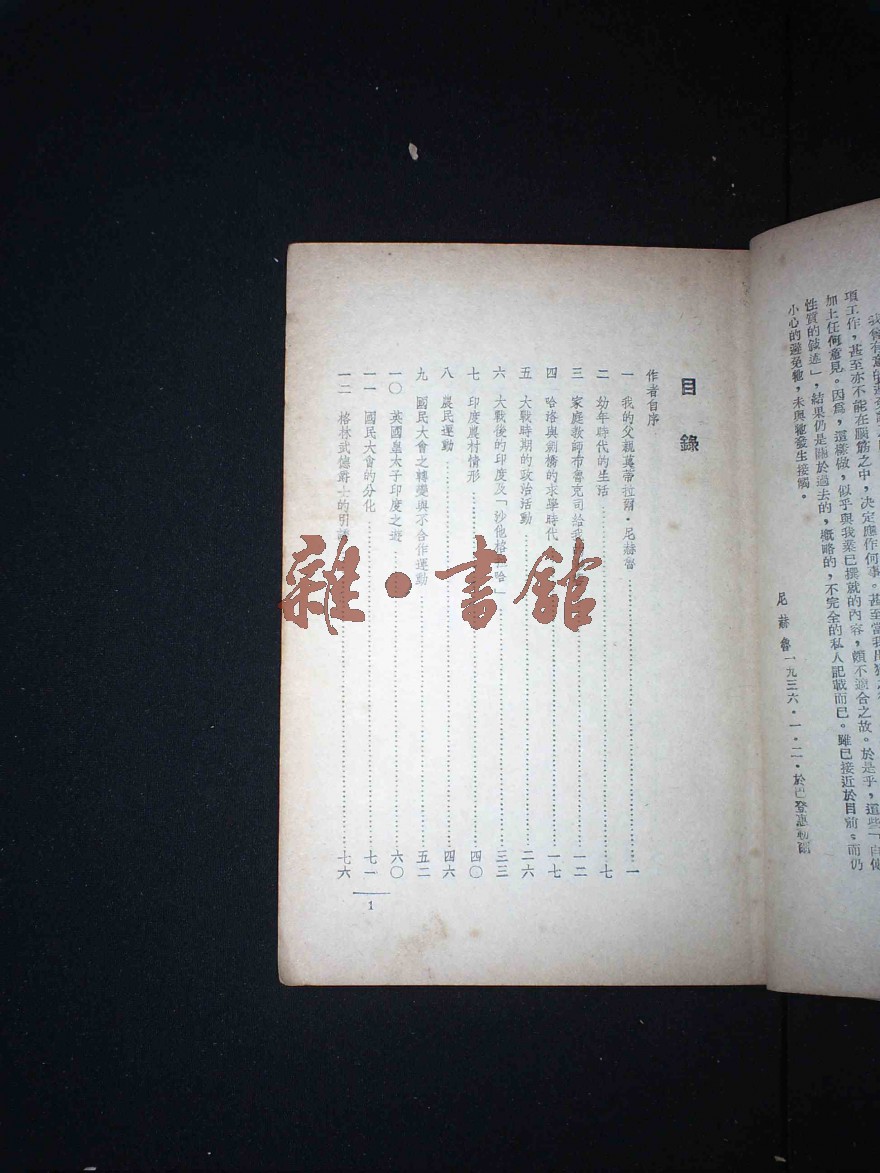 項工作，甚至亦不能在腦筋之中，決定應作何事。甚至當我
加上任何意見。因爲，這樣做，似乎與我業已撰就的內容，頗不適合之故。於是乎，這些「自傳
性質的敍述」，結果仍是關於過去的，概略的，不完全的私人記載而已。雖已接近於目前，而仍
小心的避免牠，未與牠發生接觸。
尼赫魯一九三六・一・二・於巴登惠勒爾
目錄
作者自序
一 我的父親莫蒂拉爾・尼赫魯 一
二 幼年時代的生活 七
三 家庭教師布魯克司給我 一二
四 哈洛與劍橋的求學時代 一七
五 大戰時期的政治活動 二六
六 大戰後的印度及「沙他格 哈」 三三
七 印度農村情形 四〇
八 農民運動 四六
九 國民大會之轉變與不合作運動 五二
一〇 英國皇太子印度之遊 六〇
一一 國民大會的分化 七一
一二 格林武德爵士的引 七六
1
雜・書館